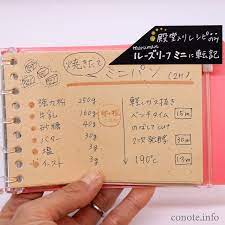 殿堂入りレシピ
maruman
ルーズリーフ ミニに転記
焼きたて
ミニパン
強力粉 250g
牛乳 160g
砂糖
バター 30g
塩 3g
イースト 3g
軽くガス抜き
ベンチタイム 15m
のばして
2次発酵 30m
190℃ 13m
conote.info